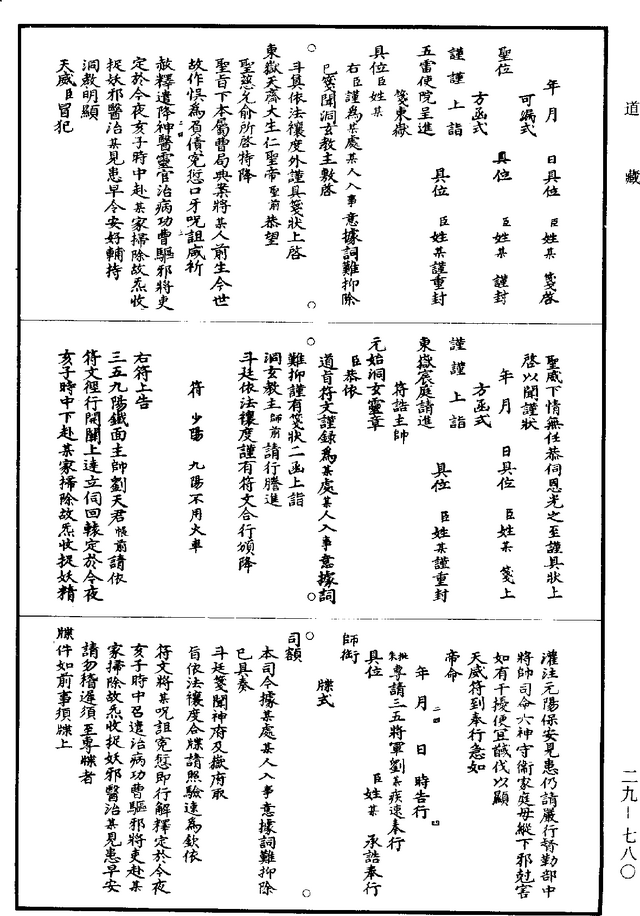 道藏
年月　日具位　臣姓某　箋啓
可漏式
聖位　具位　臣姓某　謹封
方函式
謹謹上詣　具位　臣姓某謹重封
五雷使院呈進
箋東嶽
具位臣姓某
右臣謹為某處某人入事意據詞難抑除
已箋聞洞玄教主敷啓
斗具依法禳度外謹具箋狀上啓
東嶽天齊大生仁聖帝聖前恭望
聖慈允俞所啓特降
聖旨下本屬曹局典案將某人前生今世
故作悞為負債寃愆口牙呪詛咸祈
赦釋遣降神醫靈官治病功曹驅邪將吏
定於今夜亥子時中赴某家掃除故炁收
捉妖邪醫治某見患早令安好輔持
洞教明顯
天威臣冒犯
聖威下情無任恭伺恩光之至謹具狀上
啓以聞謹狀
年月　日具位　臣姓某　箋上
方函式
謹謹上詣　具位　臣姓某謹重封
東嶽宸庭請進
符誥主帥
元始洞玄靈章
臣恭依
道旨符文謹錄為某處某人入事意據詞
難抑謹有箋狀二函上詣
洞玄教主師前請行謄進
斗廷依法禳度謹有符文合行頒降
符　少陽　九陽不用火車
右符上告
三五九陽鐵面主帥劉天君帳前請依
符文徑行開關上達立伺回轅定於今夜
亥子時中下赴某家掃除故炁收捉妖精
灌注元陽保安見患仍請嚴行督勒部中
將帥司命六神守衞家庭毋縱下邪尅害
如有干擾便宜馘伐以顯
天威符到奉行急如
帝命
年月　日　時告行
批朱專請三五將軍劉某疾速奉行
具位　臣姓某　承誥奉行
師銜
牒式
司額
本司今據某處某人入事意據詞難抑除
已具奏
斗廷箋聞神府及嶽府取
旨依法禳度合牒請照驗速為欽依
符文將某呪詛寃愆即行解釋定於今夜
亥子時中召遣治病功曹驅邪將吏赴某
家掃除故炁收捉妖邪醫治某見患早安
請勿稽遲須至專牒者
牒件如前事須牒上
二九―七八〇